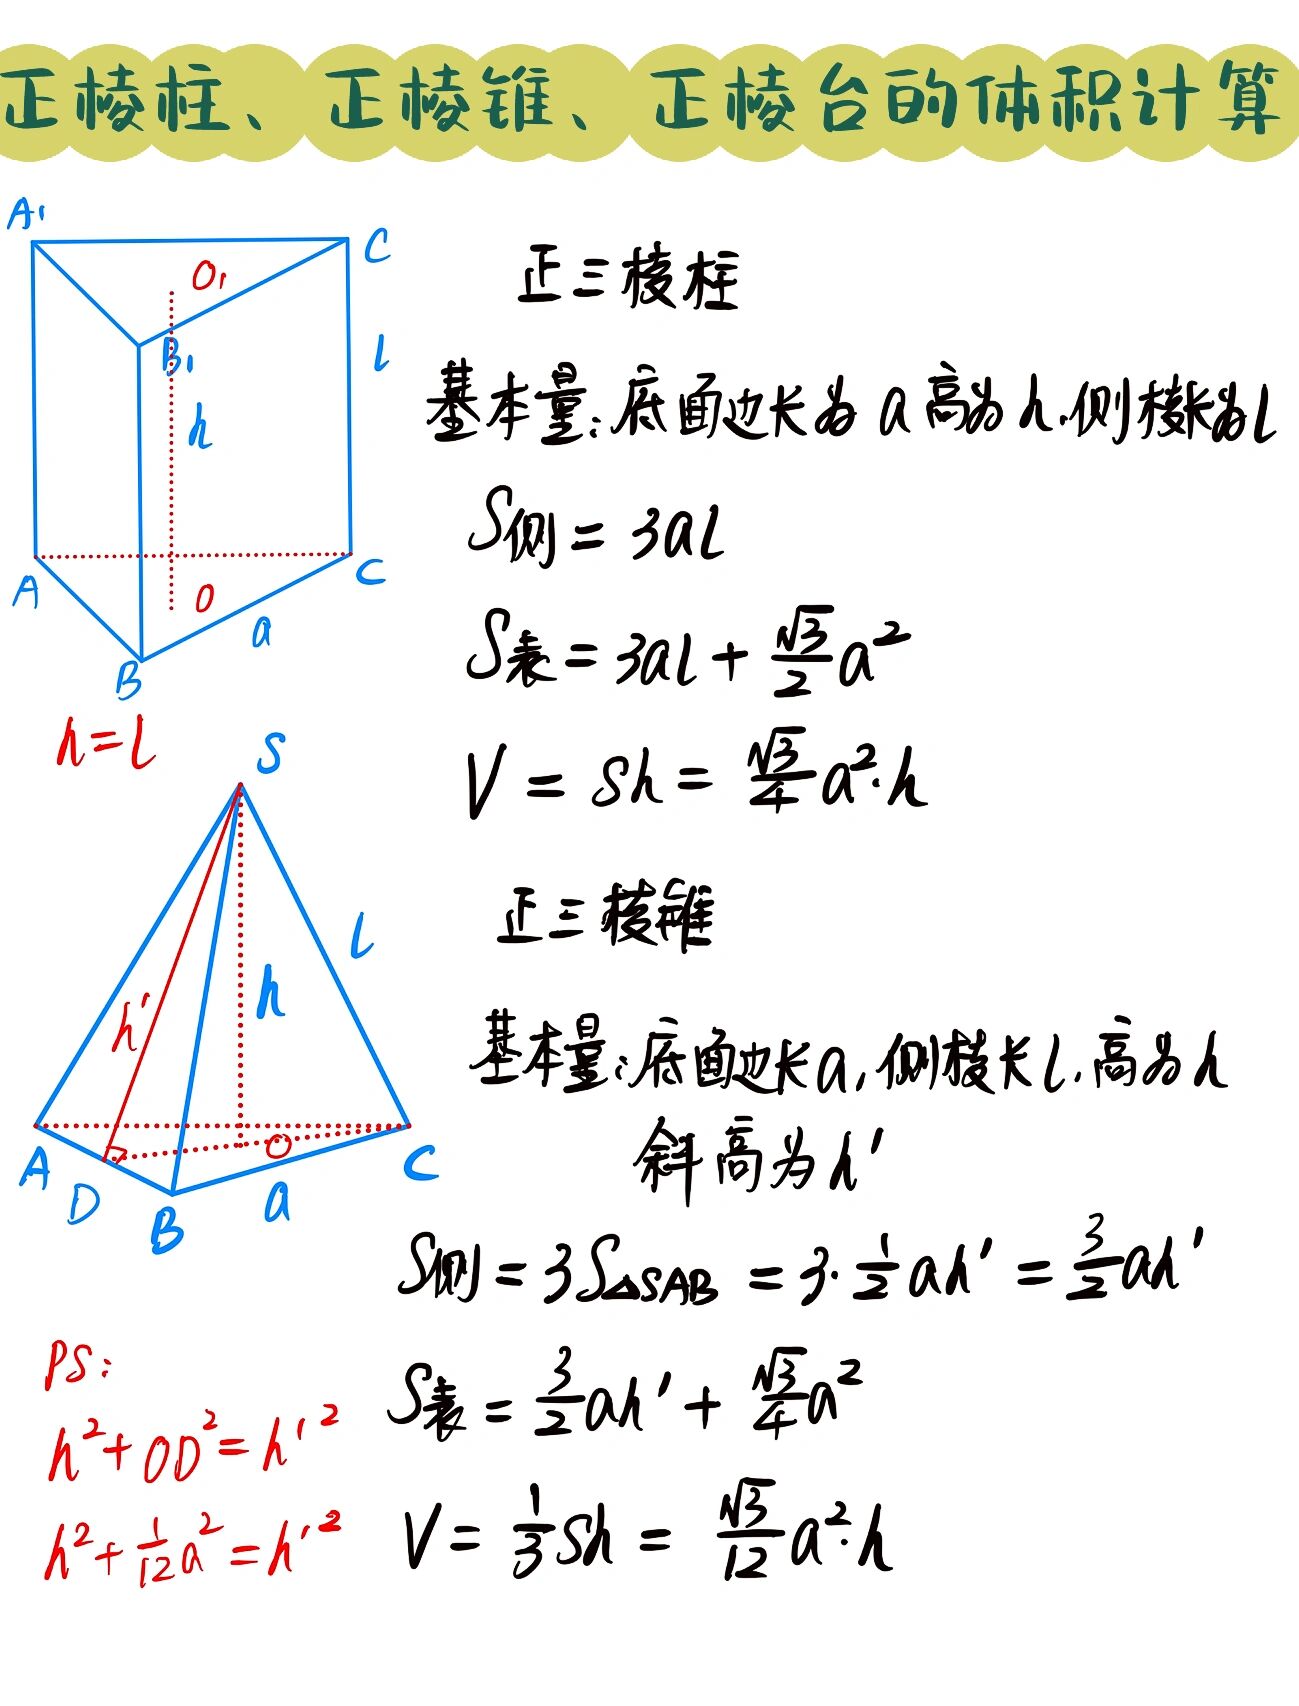 正棱柱、正棱锥、正棱台的体积计算
A₁
C
O₁
B₁
l
h
A
C
O
a
B
h=l
正三棱柱
基本量:底面边长为a高为h.侧棱长为l
S侧=3al
S表=3al+√3/2 a²
V=Sh=√3/4 a²·h
S
l
h
h'
A
O
C
D
a
B
正三棱锥
基本量:底面边长a,侧棱长l.高为h
斜高为h'
S侧=3S△SAB=3·1/2 ah'=3/2 ah'
S表=3/2 ah'+√3/4 a²
V=1/3 Sh=√3/12 a²·h
PS:
h²+OD²=h'²
h²+1/12 a²=h'²